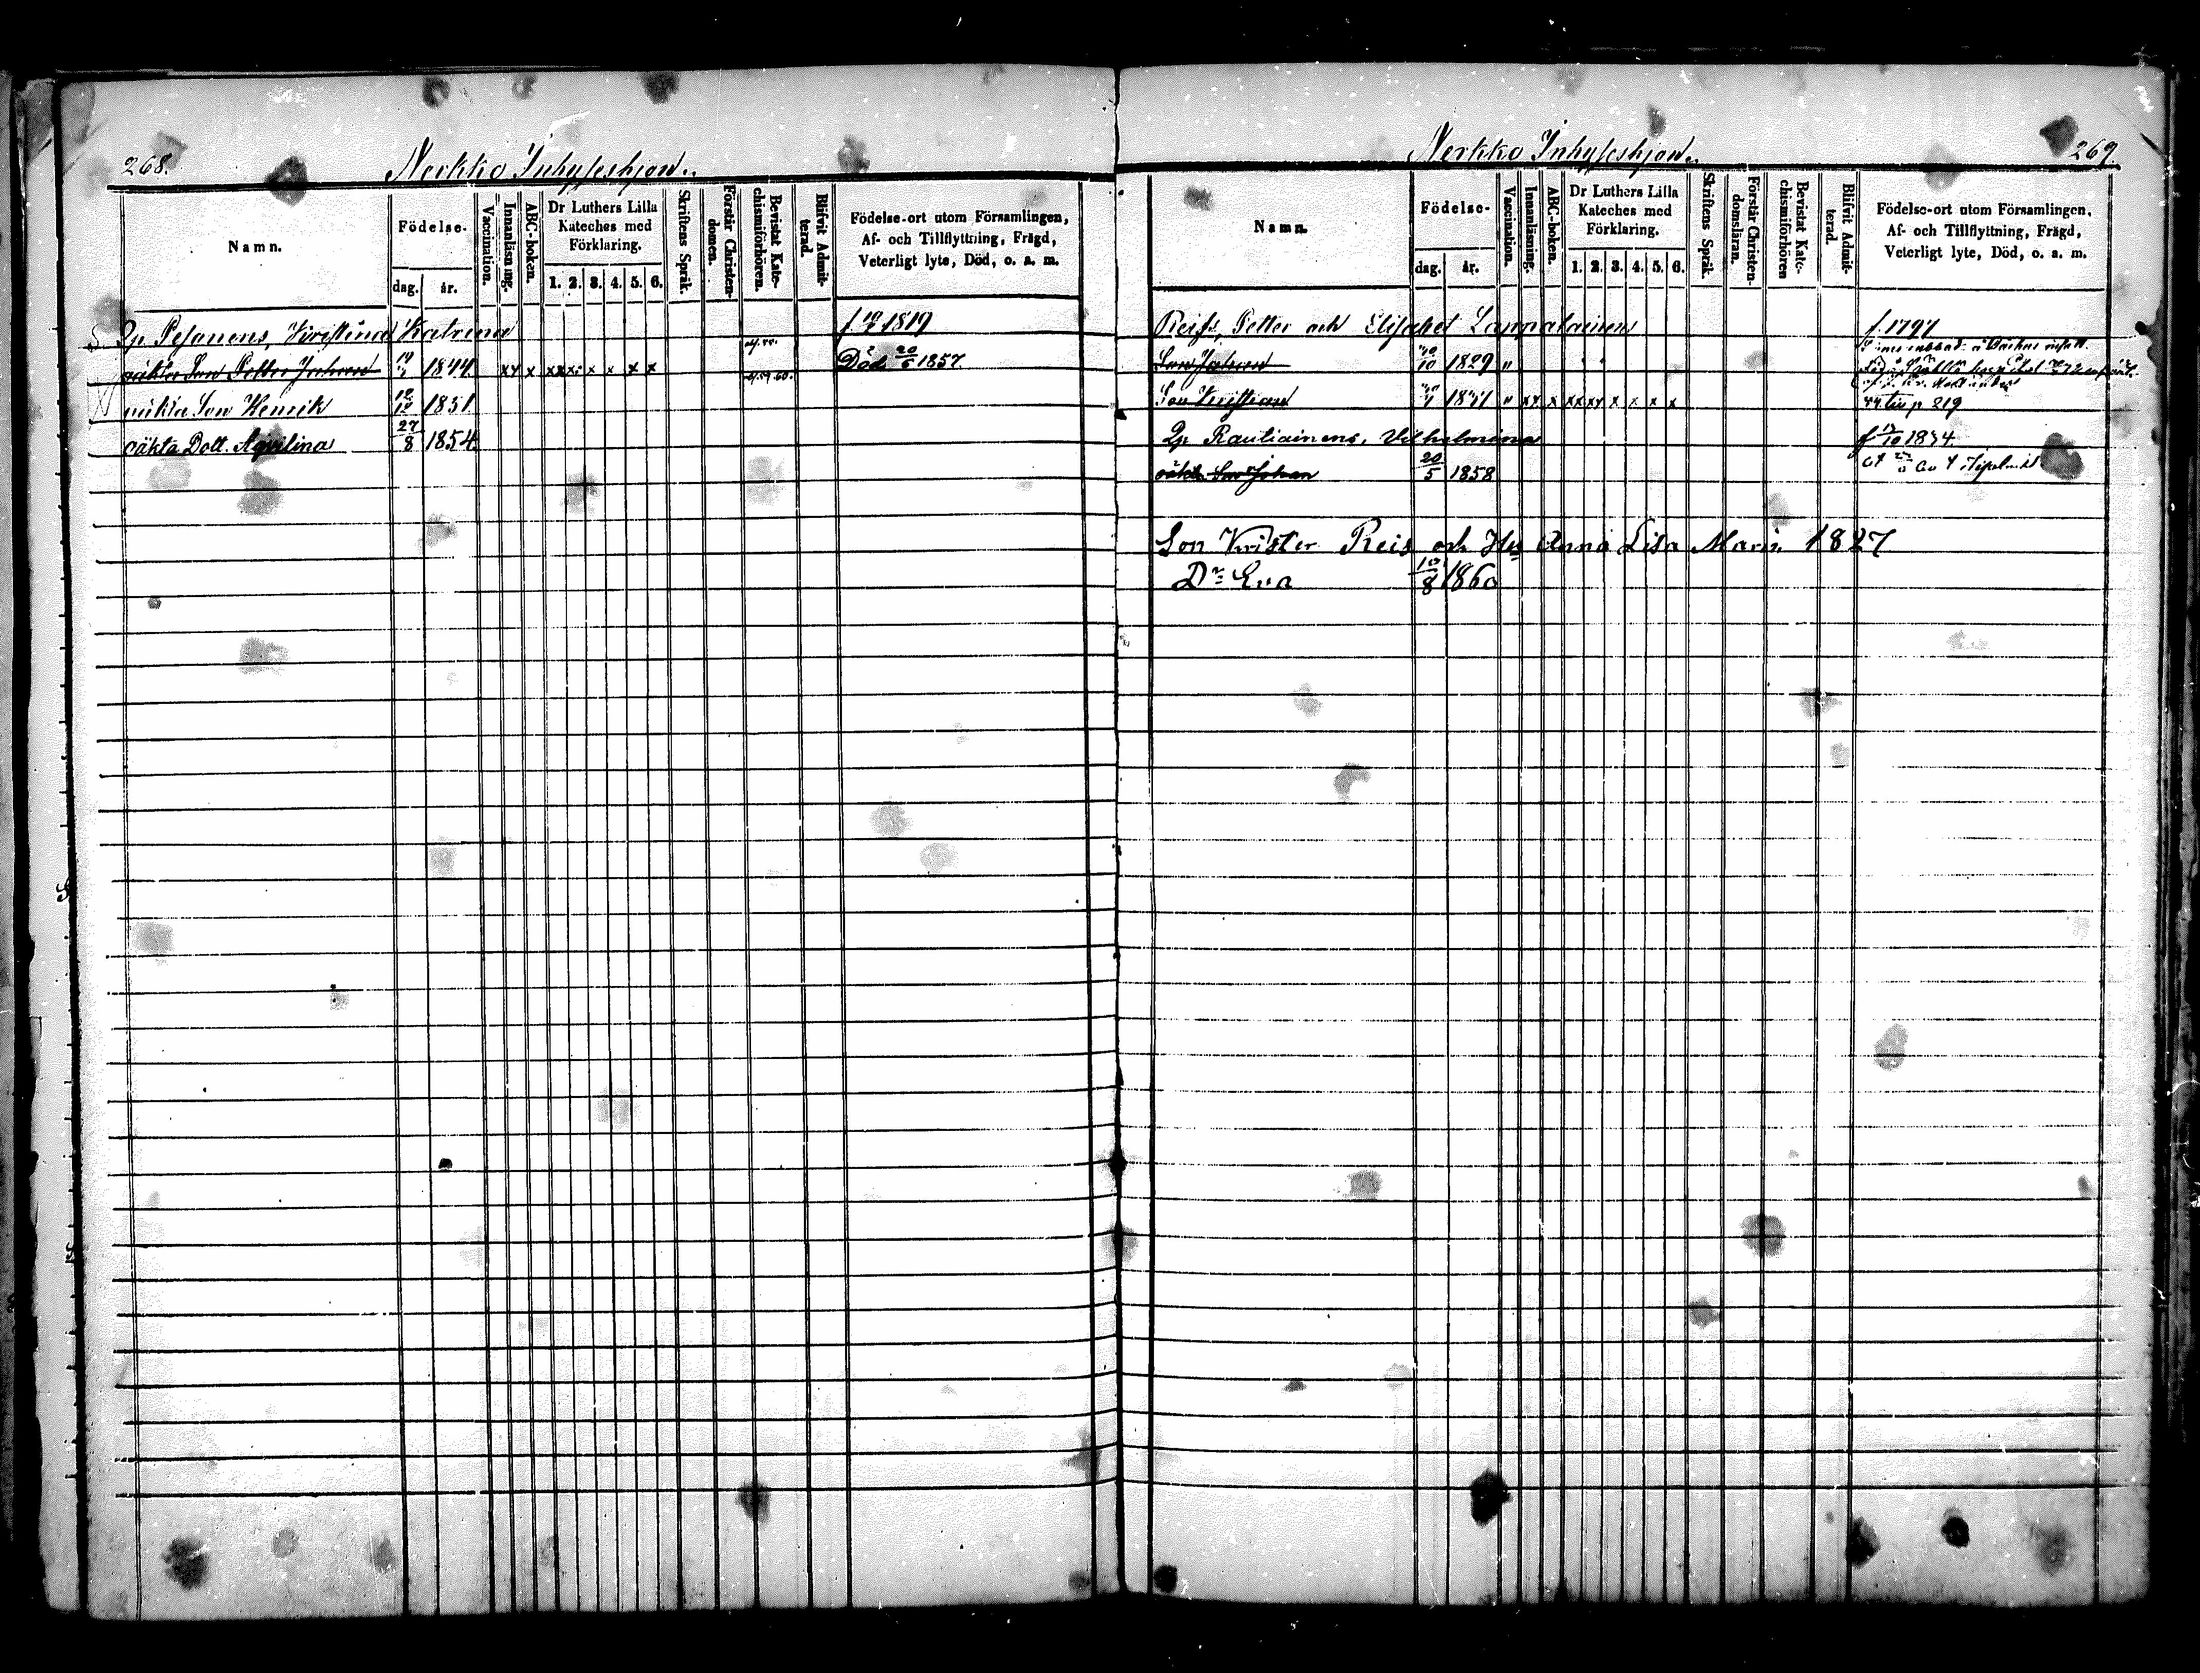 268.
Nerkko Inhyseshjon.
Namn.
Födelse-
dag. år.
Vaccination.
Innanläsning.
ABC-boken.
Dr Luthers Lilla Kateches med Förklaring.
1. 2. 3. 4. 5. 6.
Skriftens Språk.
Förstår Christen-domen.
Bevistat Kate-chismiförhören.
Blifvit Admit-terad.
Födelse-ort utom Församlingen,
Af- och Tillflyttning, Frägd,
Veterligt lyte, Död, o. a. m.
Qp. Pesonens, Kristina Katrina f 19 1819
oäkta Son Petter Johan 1844 x x x x x x x x x Död 20/5 1857
oäkta Son Henrik 1851
oäkta Dott. Aqvilina 27/8 1854
269.
Nerkko Inhyseshjon.
Namn.
Födelse-
dag. år.
Vaccination.
Innanläsning.
ABC-boken.
Dr Luthers Lilla Kateches med Förklaring.
1. 2. 3. 4. 5. 6.
Skriftens Språk.
Förstår Christen-domsläran.
Bevistat Kate-chismiförhören
Blifvit Admit-terad.
Födelse-ort utom Församlingen,
Af- och Tillflyttning, Frägd,
Veterligt lyte, Död, o. a. m.
Reiss, Petter och Elisabet Lannalainen f. 1797
Son Johan 10 1829 "
Son Kristian " x x x x x x x x p 219
Qp Rautiainens, Vilhelmina f 10 1834
oäkta Son Johan 20/5 1858
Son Krister Reis och Hu Anna Lisa Marin 1827
Dr Eva 10/8 1860